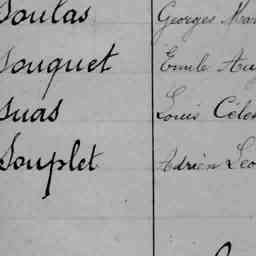 Soulas Georges Mar
Souquet Emile Aug
Suas Louis Céles
Souplet Adrien Leo